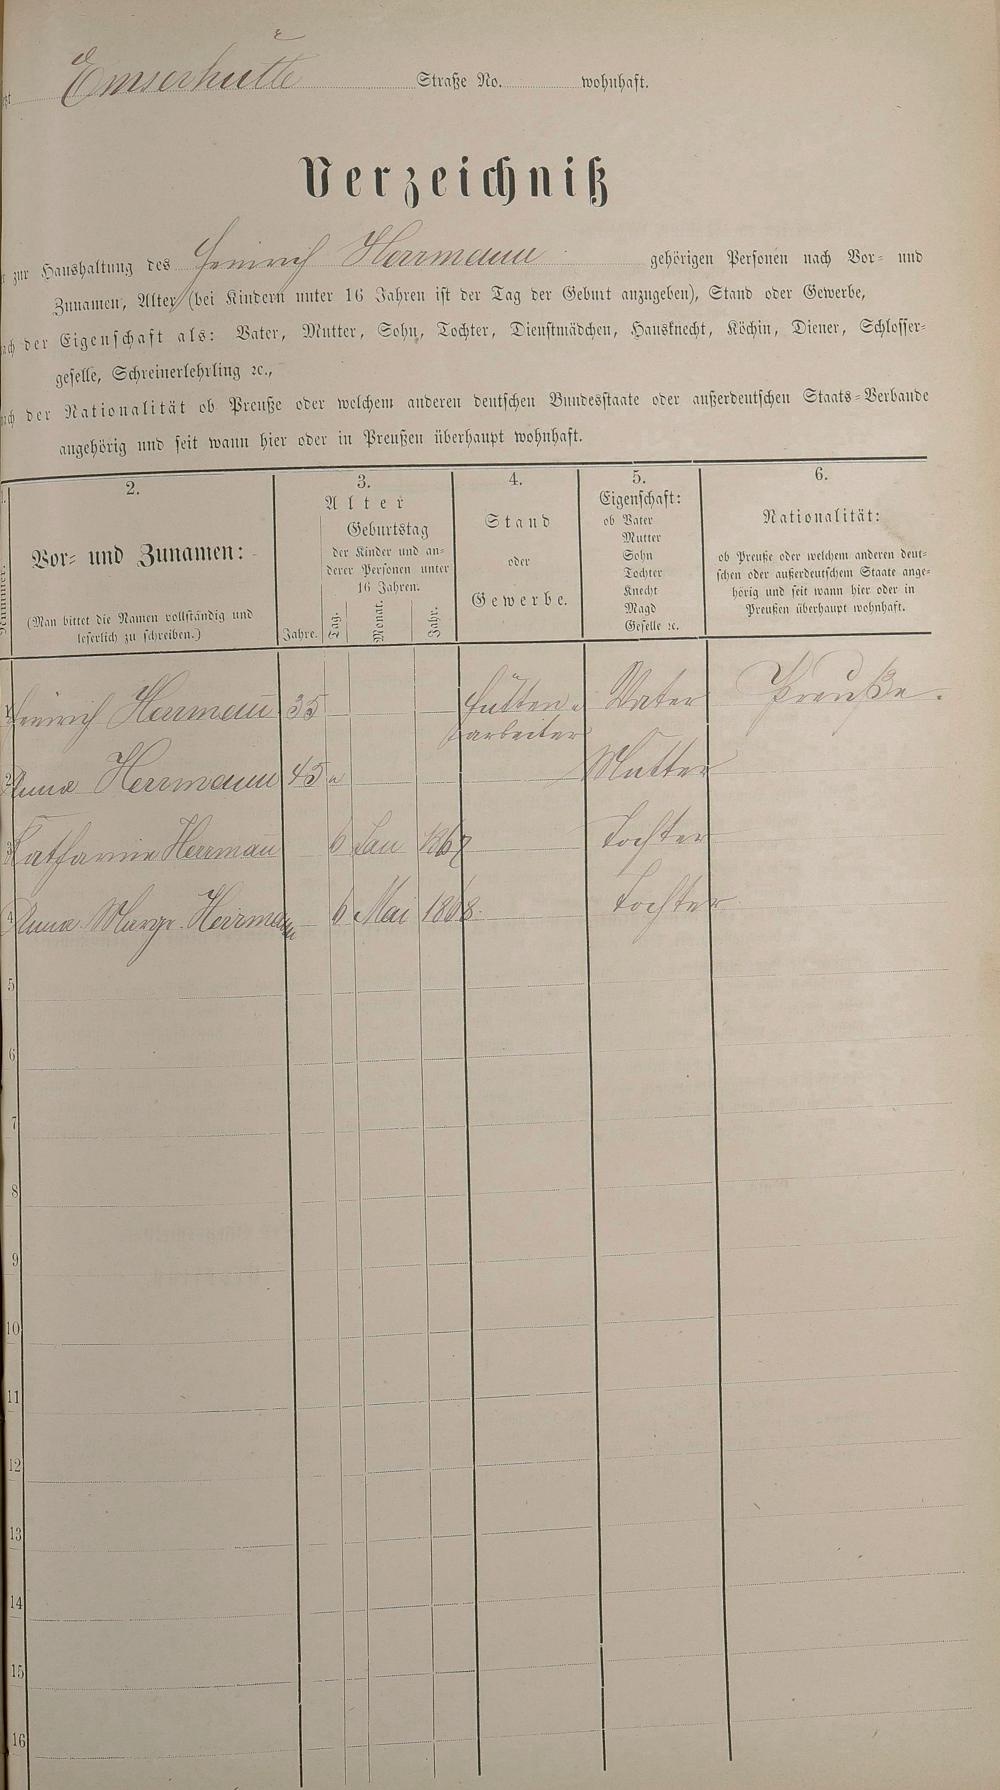 Emserhütte Straße No. wohnhaft.
Verzeichniß
zur Haushaltung des Heinrich Herrmann gehörigen Personen nach Vor- und
Zunamen, Alter (bei Kindern unter 16 Jahren ist der Tag der Geburt anzugeben), Stand oder Gewerbe,
nach der Eigenschaft als: Vater, Mutter, Sohn, Tochter, Dienstmädchen, Hausknecht, Köchin, Diener, Schlosser-
geselle, Schreinerlehrling ꝛc.,
nach der Nationalität ob Preuße oder welchem anderen deutschen Bundesstaate oder außerdeutschen Staats-Verbande
angehörig und seit wann hier oder in Preußen überhaupt wohnhaft.
1. 2. 3. 4. 5. 6.
Nummer.
Vor- und Zunamen:
(Man bittet die Namen vollständig und
leserlich zu schreiben.)
Alter
Jahre.
Geburtstag
der Kinder und an-
derer Personen unter
16 Jahren.
Tag. Monat. Jahr.
Stand
oder
Gewerbe.
Eigenschaft:
ob Vater
Mutter
Sohn
Tochter
Knecht
Magd
Geselle ꝛc.
Nationalität:
ob Preuße oder welchem anderen deut-
schen oder außerdeutschem Staate ange-
hörig und seit wann hier oder in
Preußen überhaupt wohnhaft.
1 Heinrich Herrman̄ 35 Hütten- Vater Preuße.
arbeiter
2 Anna Herrmann 45 Mutter
3 Katharine Herrman̄ 6 Jan 1867 Tochter
4 Anna Margr. Herrmann 6 Mai 1868. Tochter
5
6
7
8
9
10
11
12
13
14
15
16